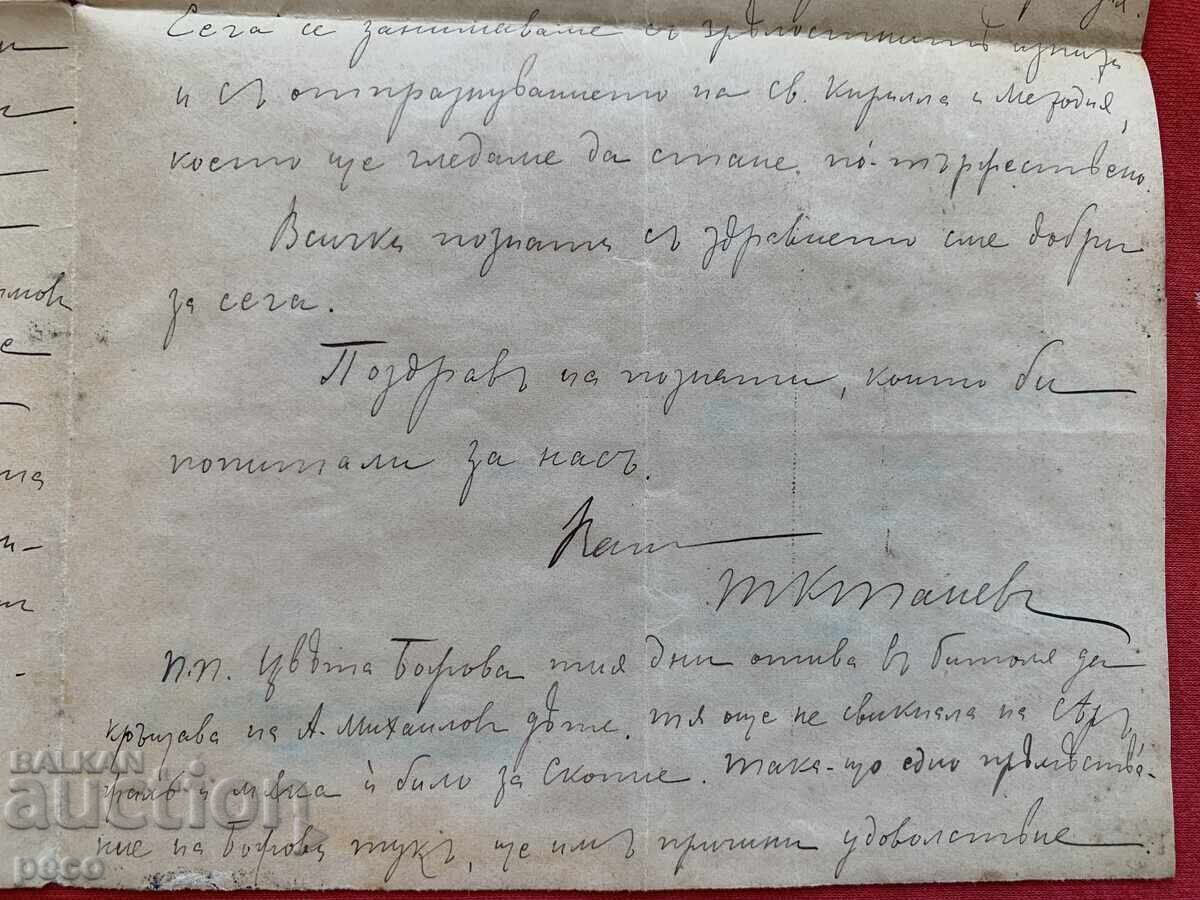 Сега се занимаваме съ зрѣлостнитѣ
и съ отпразнуванието на св. Кирилла и Методия,
което ще гледаме да стане по-тържествено.
Всички познати съ здравието сме добри
за сега.
Поздравъ на познати, които би
попитали за насъ.
Вашъ
П.П. Цвѣта Бояова тия дни отива въ Битоля да
кръщава на А. Михаиловъ дѣте. Тя още не свикнала на Сѣръ,
и мѫка ѝ било за Скопие. Така-що едно прѣмѣства-
ние на тукъ, ще имъ причини удоволствие
BALKAN
auction
peco